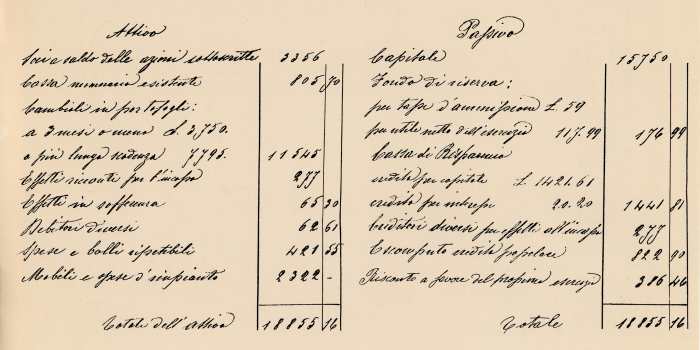 Attivo
Soci a saldo delle azioni sottoscritte 3356
Cassa numerario esistente 805 70
Cambiali in portafogli:
a 3 mesi o meno £. 3,750.
a più lunga scadenza 7795. 11545
Effetti ricevuti per l'incasso 277
Effetti in sofferenza 65 30
Debitori diversi 62 61
Spese e bolli ripetibili 421 55
Mobili e spese d'impianto 2322 -
Totale dell'attivo 18855 16
Passivo
Capitale 15750
Fondo di riserva:
per tasse d'ammissione £. 59
per utile netto dell'esercizio 117.99 176 99
Cassa di Risparmio
credito per capitale £. 1421.61
credito per interessi 20.20 1441 81
Creditori diversi per effetti all'incasso 277
Escomputo popolare 822 90
Risconto a favore del prossimo esercizio 386 46
Totale 18855 16